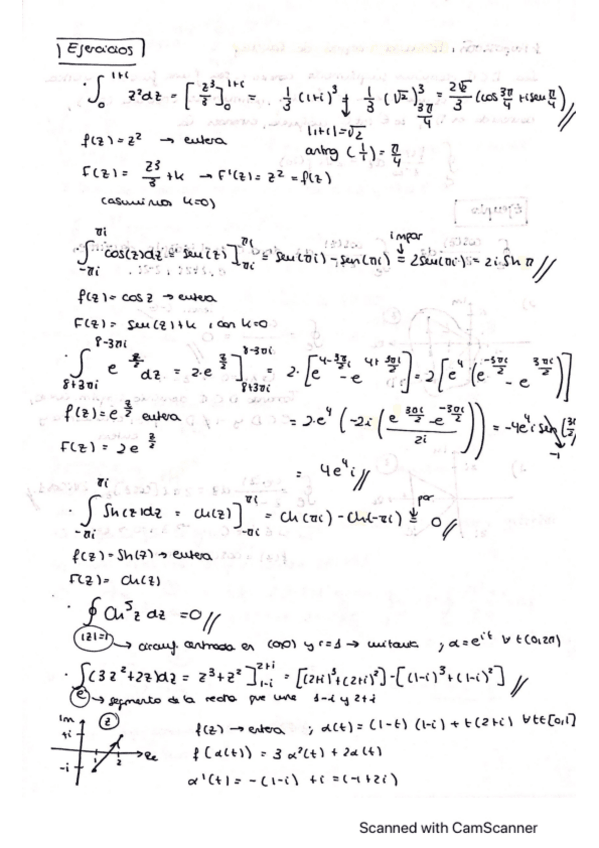 Ejercicios
· ∫₀^{1+i} z²dz = [z³/3]₀^{1+i} = 1/3 (1+i)³ = 1/3 (√2)³_{3π/4} = 2√2/3 (cos 3π/4 + i sen π/4)//
|1+i|=√2
f(z)=z² → entera
arctg (1/1) = π/4
F(z)= z³/3 +k → F'(z)= z² = f(z)
(asumimos k=0)
· ∫_{-πi}^{πi} cos(z)dz = sen(z)]_{-πi}^{πi} = sen(πi) - sen(-πi) = 2sen(πi) = 2i Sh π //
impar
f(z)= cos z → entera
F(z)= sen(z)+k , con k=0
· ∫_{8+3πi}^{8-3πi} e^{z/2} dz = 2·e^{z/2}]_{8+3πi}^{8-3πi} = 2·[e^{4-3πi/2} - e^{4+3πi/2}] = 2[e⁴(e^{-3πi/2} - e^{3πi/2})]
f(z)= e^{z/2} entera
= 2·e⁴ (-2i (e^{3πi/2} - e^{-3πi/2} / 2i)) = -4e⁴i sen(3π/2
-1
F(z) = 2e^{z/2}
= 4e⁴i//
· ∫_{-πi}^{πi} Sh(z)dz = Ch(z)]_{-πi}^{πi} = Ch(πi) - Ch(-πi) = 0//
par
f(z)= Sh(z) → entera
F(z)= Ch(z)
· ∮ Ch⁵z dz = 0//
|z|=1 → circunf. centrada en (0,0) y r=1 → unitaria , α=e^{it} ∀ t(0,2π)
· ∫(3z²+2z)dz = z³+z²]_{1-i}^{2+i} = [(2+i)³+(2+i)²] - [(1-i)³+(1-i)²]//
e → segmento de la recta que une 1-i y 2+i
Im
z
+i
-i
1 2
Re
f(z) → entera ; α(t)= (1-t) (1-i) + t(2+i) ∀t∈[0,1]
f(α(t)) = 3α²(t) + 2α(t)
α'(t)= -(1-i) +i = (-1+2i)
Scanned with CamScanner